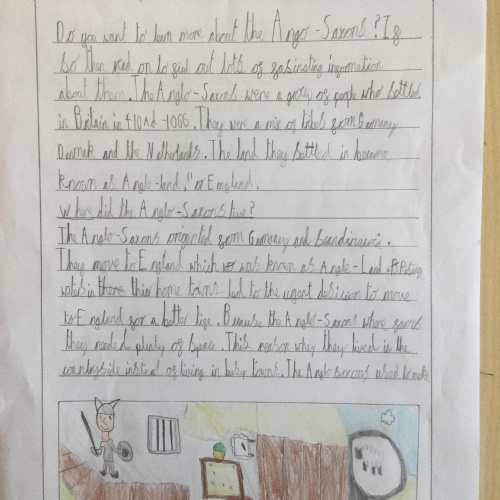 Do you want to learn more about the Ango-Saxons? If
so then read on to find out lots of fasinating information
about them. The Anglo-Saxons were a group of people who settled
in Britain in 410Ad-1066. They were a mix of tribes from Germany
Denmark and the Netherlands. The land they settled in became
known as Angle-land," or England.
Where did the Anglo-Saxons live?
The Anglo-Saxons originted from Gemany and Scandinavia.
They move to England which was known as Angle-Land. Rising
waters in thier home towns led to the urgent desicion to move
to England for a better life. Because the Anglo-Saxons where
they needed plenty of space. This reason why they lived in the
countryside instead of living in busy towns. The Anglo saxons used to make